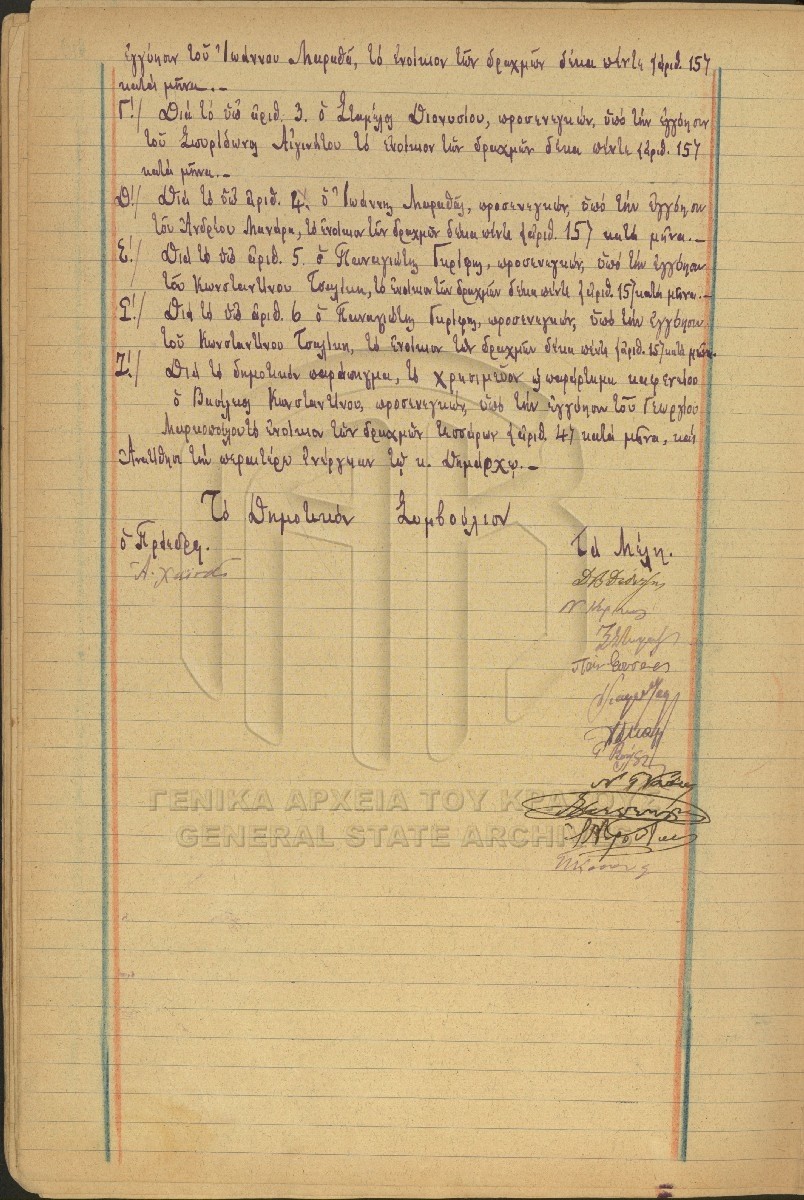 ἐγγύησιν τοῦ Ἰωάννου Μαραθᾶ, τὸ ἐνοίκιον τῶν δραχμῶν δέκα πέντε (ἀριθ. 15)
κατὰ μῆνα.—
Γ΄./ Διὰ τὸ ὑπ' ἀριθ. 3. ὁ Σταμέλος Διονυσίου, προσενεγκών, ὑπὸ τὴν ἐγγύησιν
τοῦ Σπυρίδωνος Αἰγινήτου τὸ ἐνοίκιον τῶν δραχμῶν δέκα πέντε (ἀριθ. 15)
κατὰ μῆνα.—
Δ΄./ Διὰ τὸ ὑπ' ἀριθ. 4. ὁ Ἰωάννης Μαραθᾶς, προσενεγκών, ὑπὸ τὴν ἐγγύησιν
τοῦ Ἀνδρέου Μανάρα, τὸ ἐνοίκιον τῶν δραχμῶν δέκα πέντε (ἀριθ. 15) κατὰ μῆνα.—
Ε΄./ Διὰ τὸ ὑπ' ἀριθ. 5. ὁ Παναγιώτης Γκρίφης, προσενεγκών, ὑπὸ τὴν ἐγγύησιν
τοῦ Κωνσταντίνου Τσαλίκη, τὸ ἐνοίκιον τῶν δραχμῶν δέκα πέντε (ἀριθ. 15) κατὰ μῆνα.—
ΣΤ΄./ Διὰ τὸ ὑπ' ἀριθ. 6 ὁ Παναγιώτης Γκρίφης, προσενεγκών, ὑπὸ τὴν ἐγγύησιν
τοῦ Κωνσταντίνου Τσαλίκη, τὸ ἐνοίκιον τῶν δραχμῶν δέκα πέντε (ἀριθ. 15) κατὰ μῆνα.
Ζ΄./ Διὰ τὸ δημοτικὸν παράπηγμα, τὸ χρησιμεῦον ὡς παράρτημα καφενείου
ὁ Βασίλειος Κωνσταντίνου, προσενεγκών, ὑπὸ τὴν ἐγγύησιν τοῦ Γεωργίου
Μαρκοπούλου τὸ ἐνοίκιον τῶν δραχμῶν τεσσάρων (ἀριθ. 4) κατὰ μῆνα, καὶ
Ἀνατίθησι τὴν περαιτέρω ἐνέργειαν τῷ κ. Δημάρχῳ.—
Τὸ Δημοτικὸν Συμβούλιον
ὁ Πρόεδρος.
Τὰ Μέλη.
ΓΕΝΙΚΑ ΑΡΧΕΙΑ ΤΟΥ ΚΡΑΤΟΥΣ
GENERAL STATE ARCHIVES